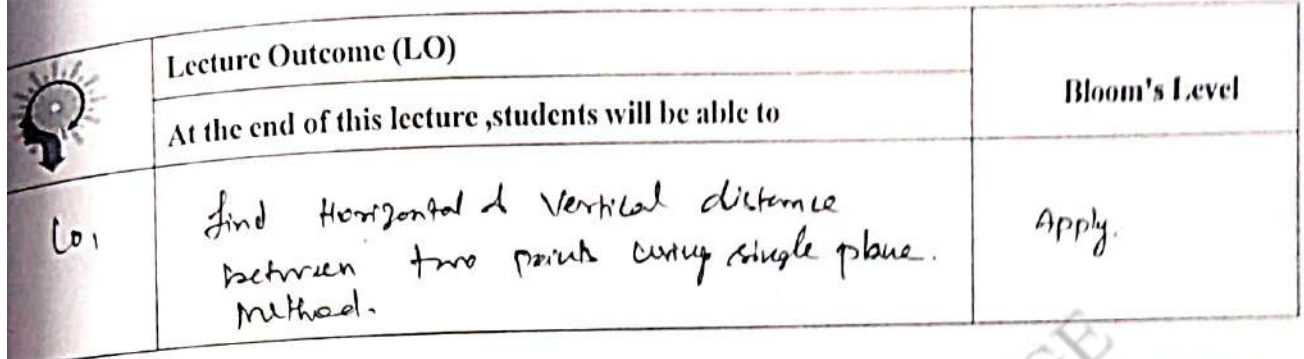 Lecture Outcome (LO)
Bloom's Level
At the end of this lecture ,students will be able to
CO1
find Horizontal & Vertical distance
between two points using single plane.
Method.
Apply.
GE